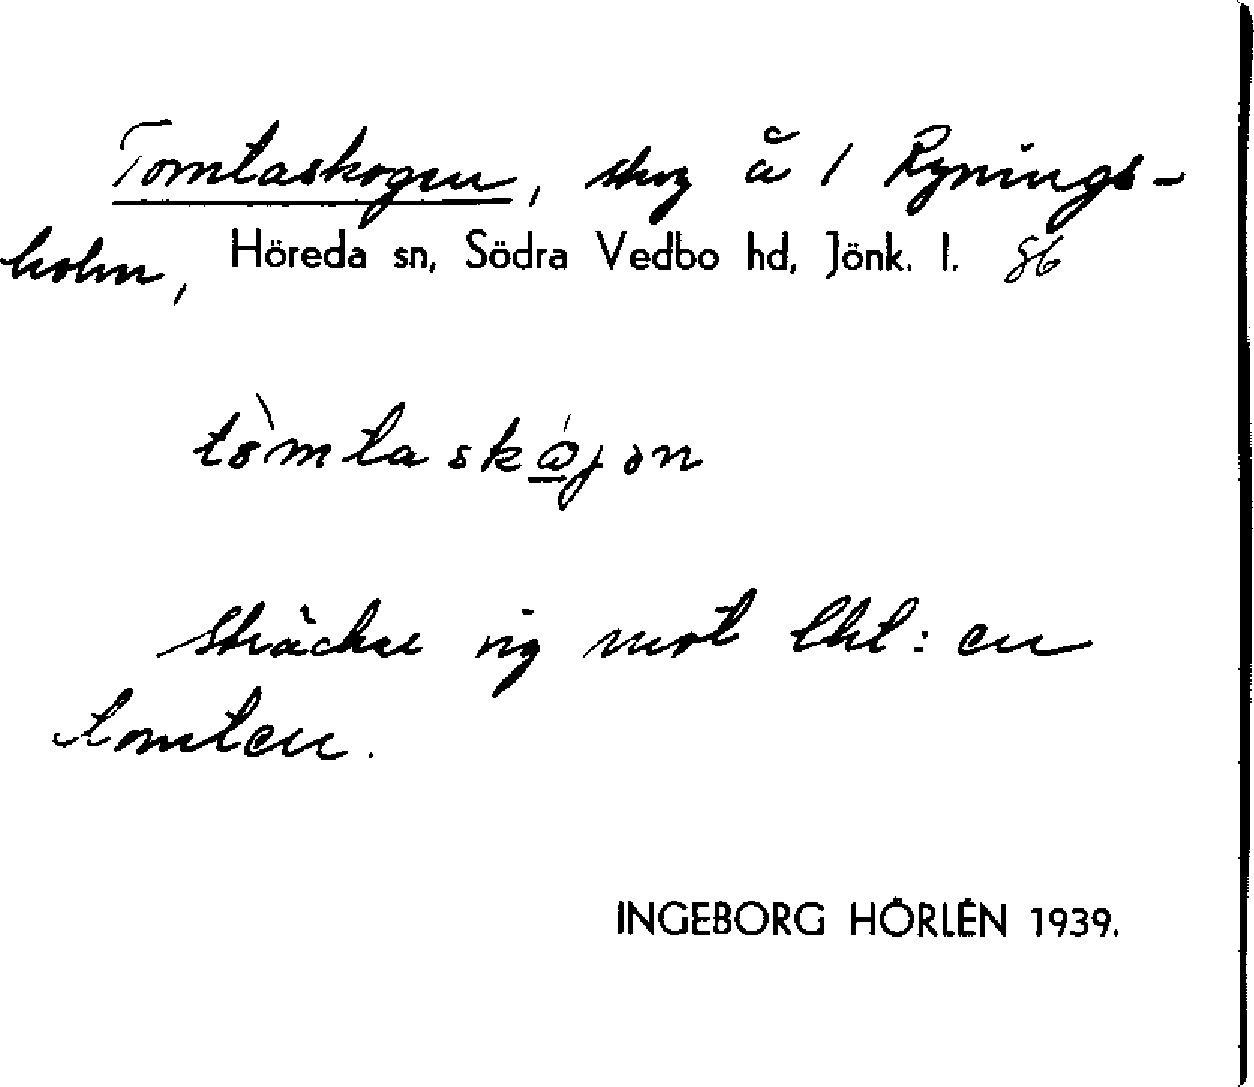 Tomtaskogen, skog å 1 Rynings-
holm, Höreda sn, Södra Vedbo hd, Jönk. l. 86
tòmtaskǻjən
Sträcker sig mot lht: en
tomten.
INGEBORG HÖRLÉN 1939.